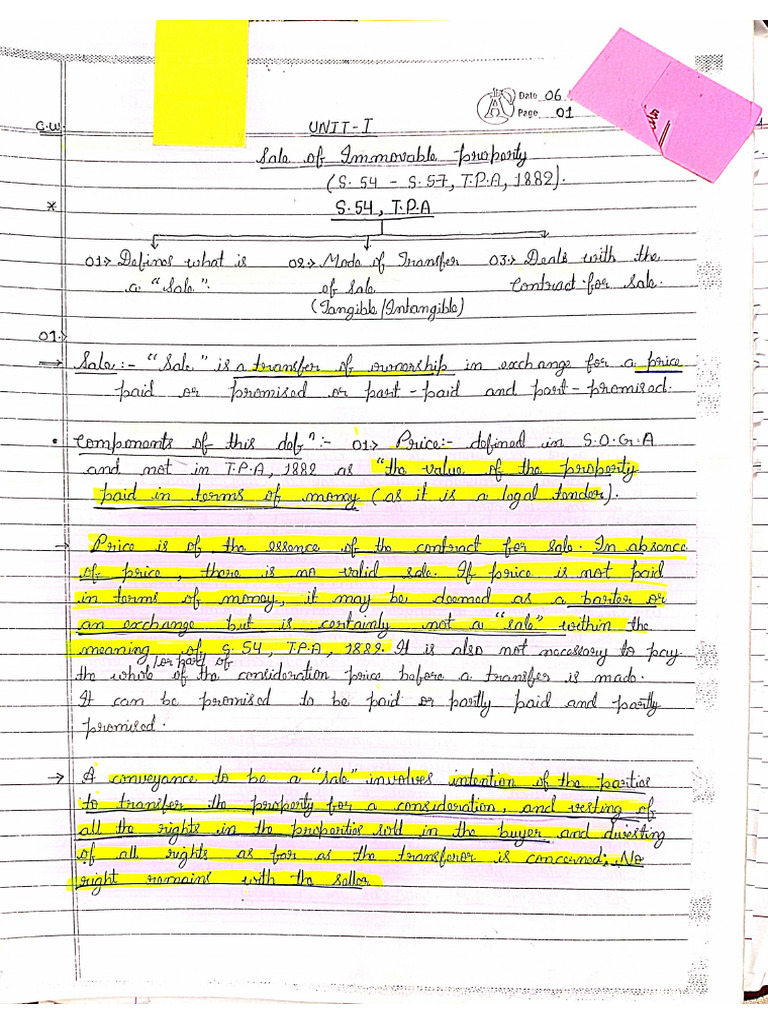 Date 06
Page 01
C.W
UNIT-I
Sale of Immovable property
(S.54 - S.57, T.P.A, 1882).
*
S.54, T.P.A
01> Defines what is a "Sale".
02> Mode of Transfer of Sale (Tangible/Intangible)
03> Deals with the Contract for Sale.
01>
→ Sale:- "Sale" is a transfer of ownership in exchange for a price
paid or promised or part-paid and part-promised.
• Components of this defⁿ:- 01> Price:- defined in S.O.G.A
and not in T.P.A, 1882 as "the value of the property
paid in terms of money (as it is a legal tender).
→ Price is of the essence of the contract for sale. In absence
of price, there is no valid sale. If price is not paid
in terms of money, it may be deemed as a barter or
an exchange but is certainly not a "sale" within the
meaning of S.54, T.P.A, 1882. It is also not necessary to pay
the whole/or part of of the consideration price before a transfer is made.
It can be promised to be paid or partly paid and partly
promised.
→ A conveyance to be a "sale" involves intention of the parties
to transfer the property for a consideration, and vesting of
all the rights in the properties sold in the buyer and divesting
of all rights as far as the transferor is concerned; No
right remains with the seller